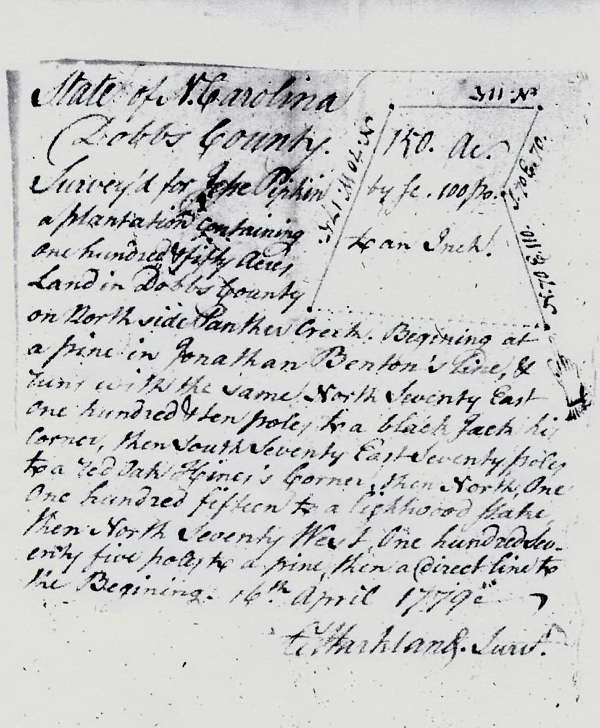 State of N. Carolina
Dobbs County.
Survey'd for Jesse Pipkin
a plantation containing
one hundred & fifty Acres
Land in Dobbs County
on North side Panther Creek. Begining at
a pine in Jonathan Benton's Line, &
runs with the same North Seventy East
One hundred & ten poles to a black Jack his
Corner, then South Seventy East Seventy poles
to a red Oak Hines's Corner, then North, One
One hundred fifteen to a lightwood stake
then North Seventy West One hundred Sev-
enty five poles to a pine, then a direct line to
the Begining. 16th April 1779
Markland. Survr.
150. Ac.
by sc. 100 po.
to an Inch.
N. 70 W 175
N. 70 E 110.